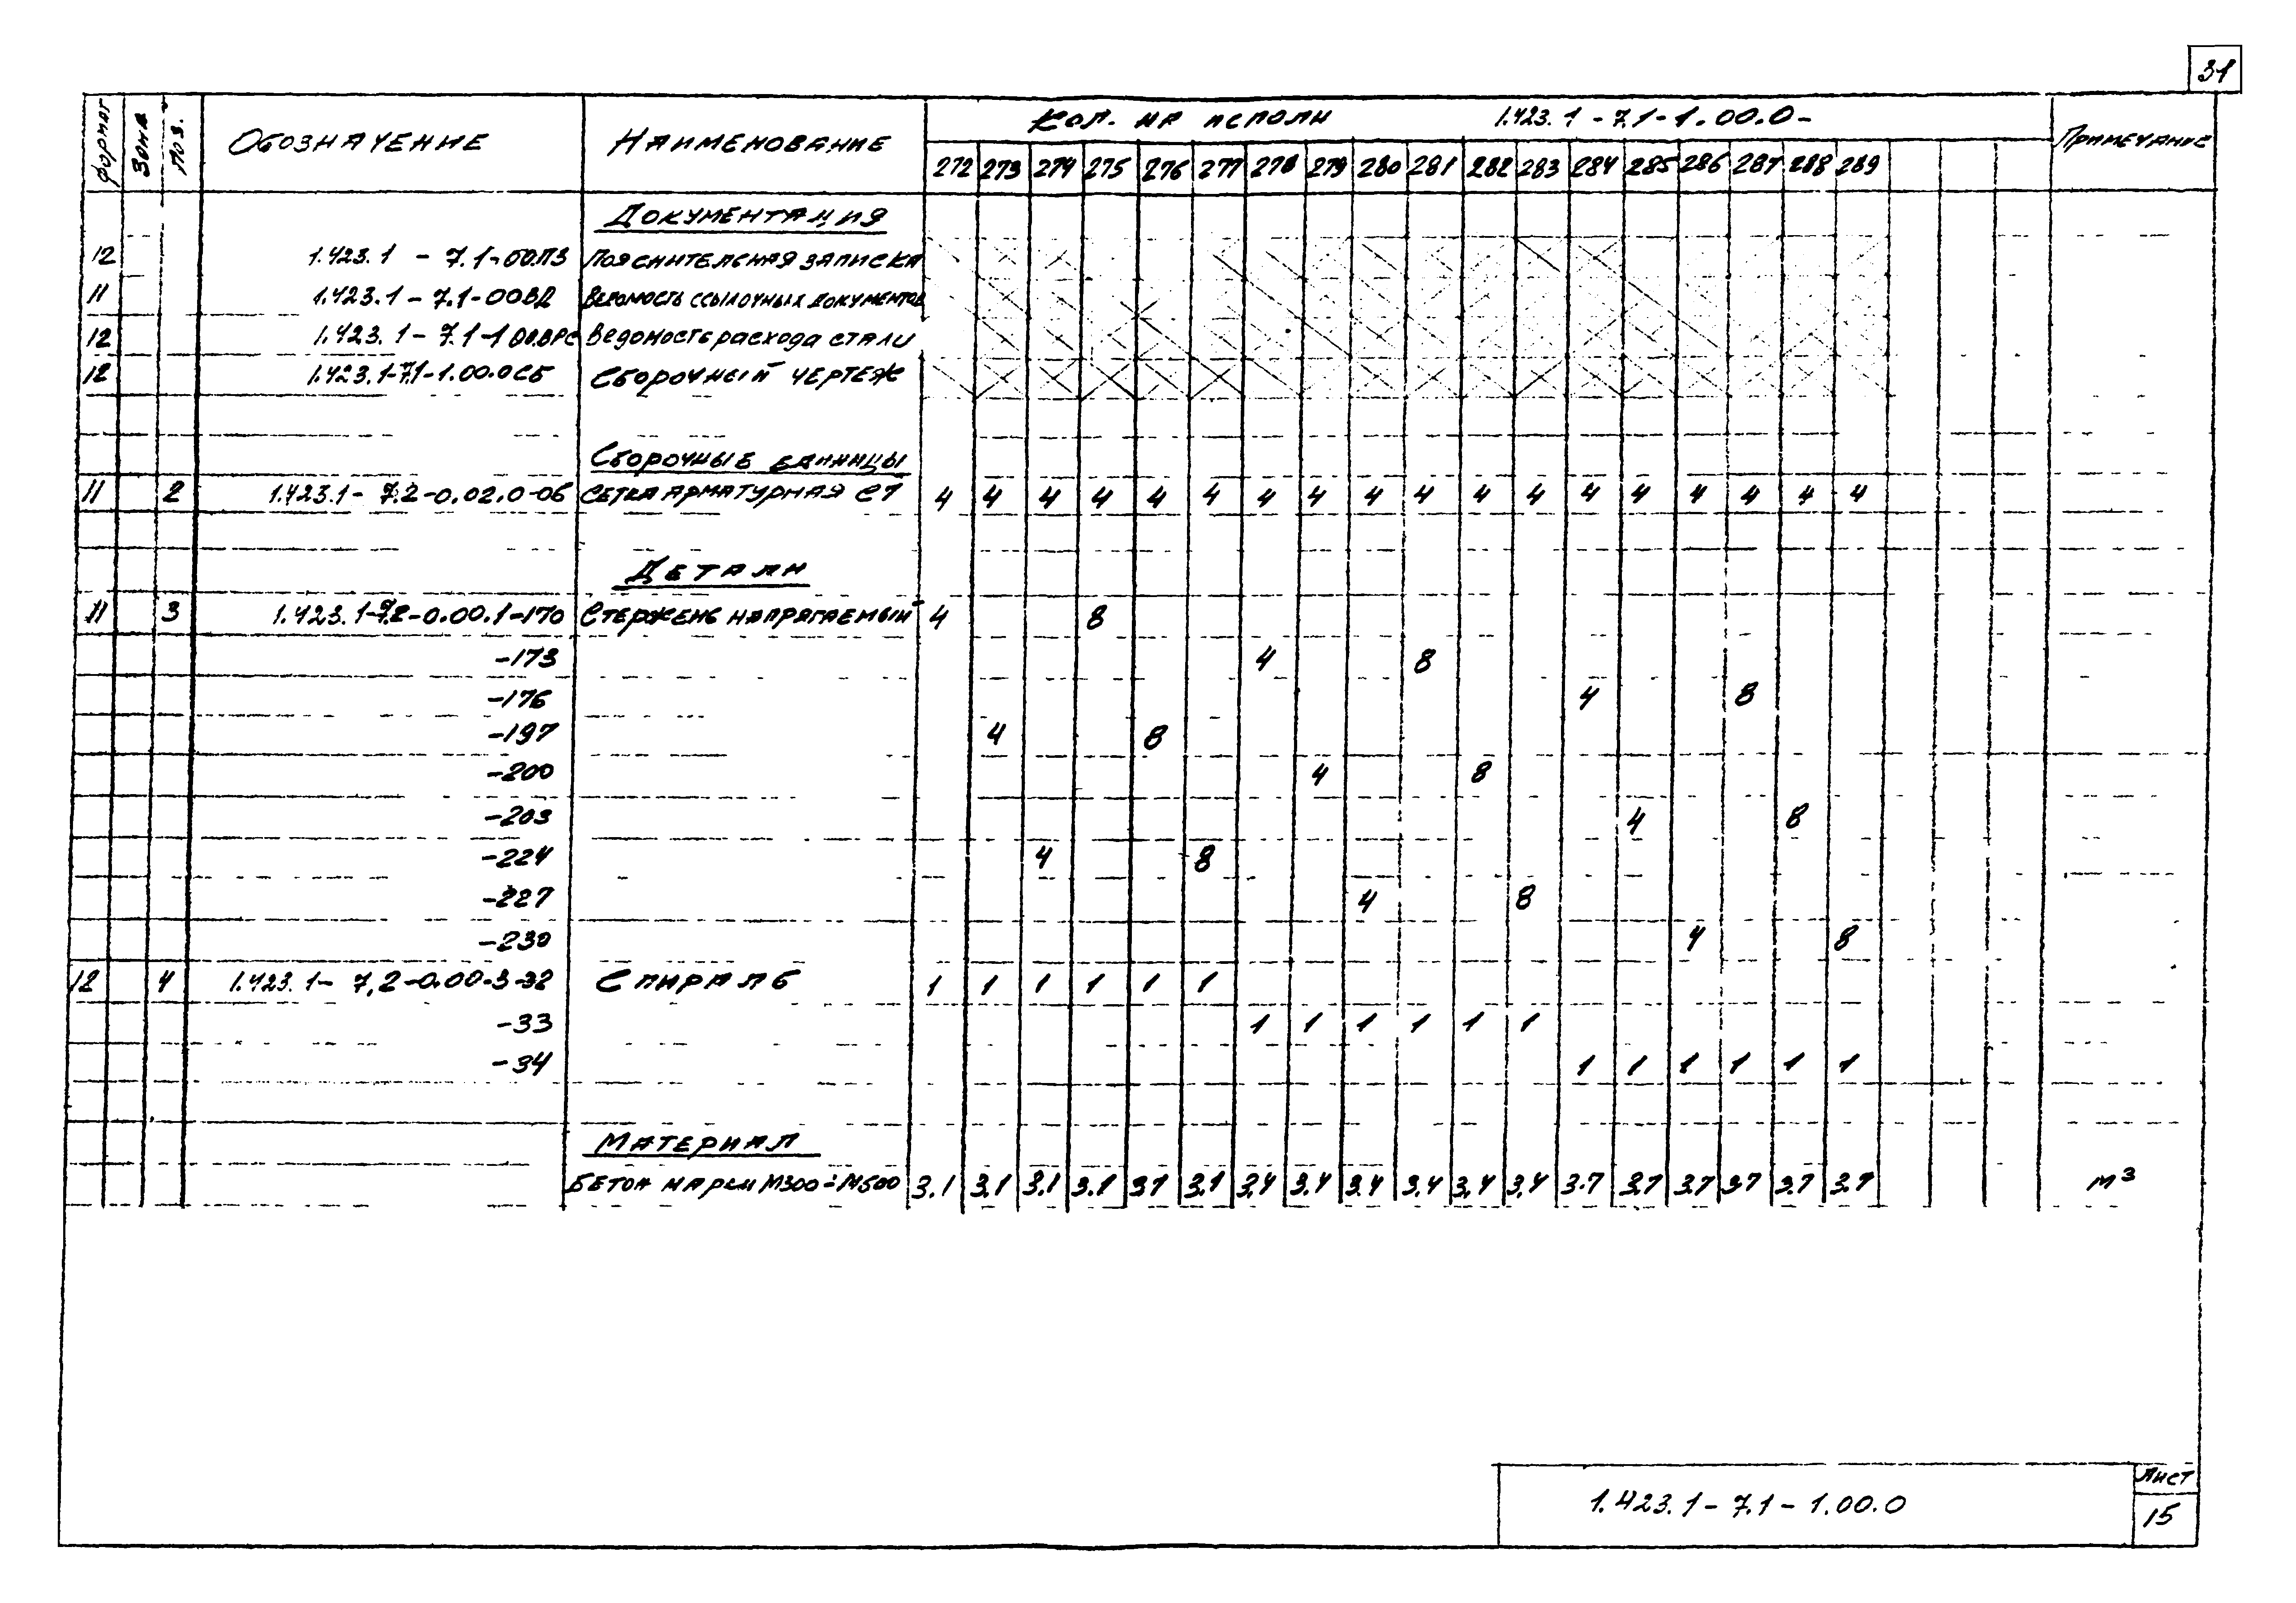 31
формат Зона Поз. Обозначение Наименование Кол. на исполн 1.423.1-7.1-1.00.0- Примечание
272 273 274 275 276 277 278 279 280 281 282 283 284 285 286 287 288 289
Документация
12 1.423.1-7.1-00.ПЗ Пояснительная записка
11 1.423.1-7.1-00ВД Ведомость ссылочных документов
12 1.423.1-7.1-1 00.ВРС Ведомость расхода стали
12 1.423.1-7.1-1.00.0СБ Сборочный чертеж
Сборочные единицы
11 2 1.423.1-7.2-0.02.0-06 Сетка арматурная С1 4 4 4 4 4 4 4 4 4 4 4 4 4 4 4 4 4 4
Детали
11 3 1.423.1-7.2-0.00.1-170 Стержень напрягаемый 4 8
-173 4 8
-176 4 8
-197 4 8
-200 4 8
-203 4 8
-224 4 8
-227 4 8
-230 4 8
12 4 1.423.1-7.2-0.00.3-32 Спираль 1 1 1 1 1 1
-33 1 1 1 1 1 1
-34 1 1 1 1 1 1
Материал
Бетон марки М300÷М500 3.1 3.1 3.1 3.1 3.1 3.1 3.4 3.4 3.4 3.4 3.4 3.4 3.7 3.7 3.7 3.7 3.7 3.7 м³
1.423.1-7.1-1.00.0
Лист
15